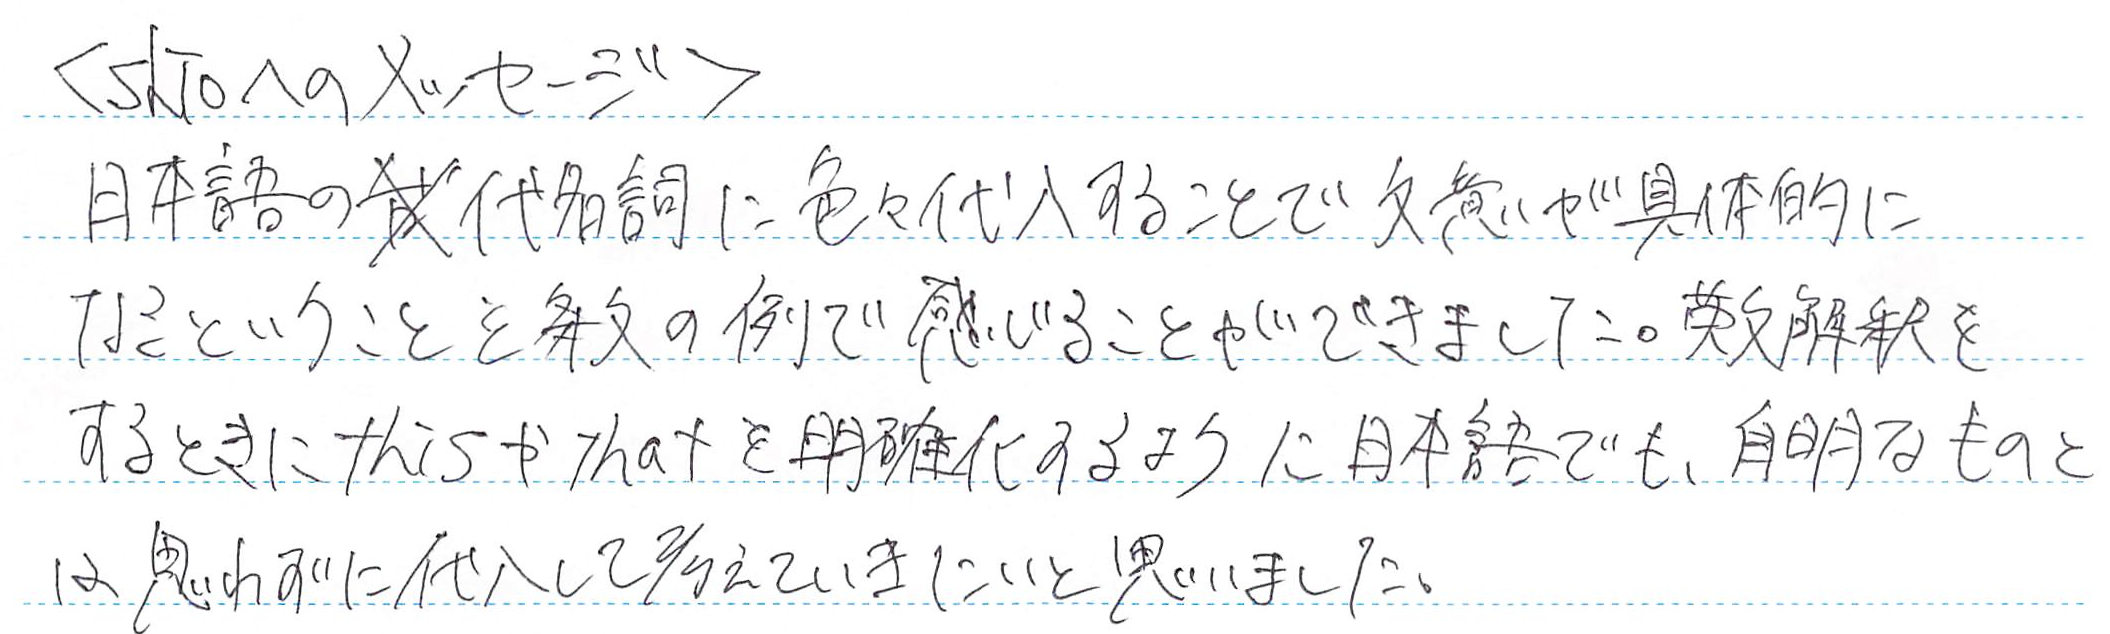 <SNJOへのメッセージ>
日本語の代名詞に色々代入することで文意が具体的に
なるということを条文の例で感じることができました。英文解釈を
するときにthisやthatを明確化するように日本語でも、自明なものと
は思わずに代入して考えていきたいと思いました。